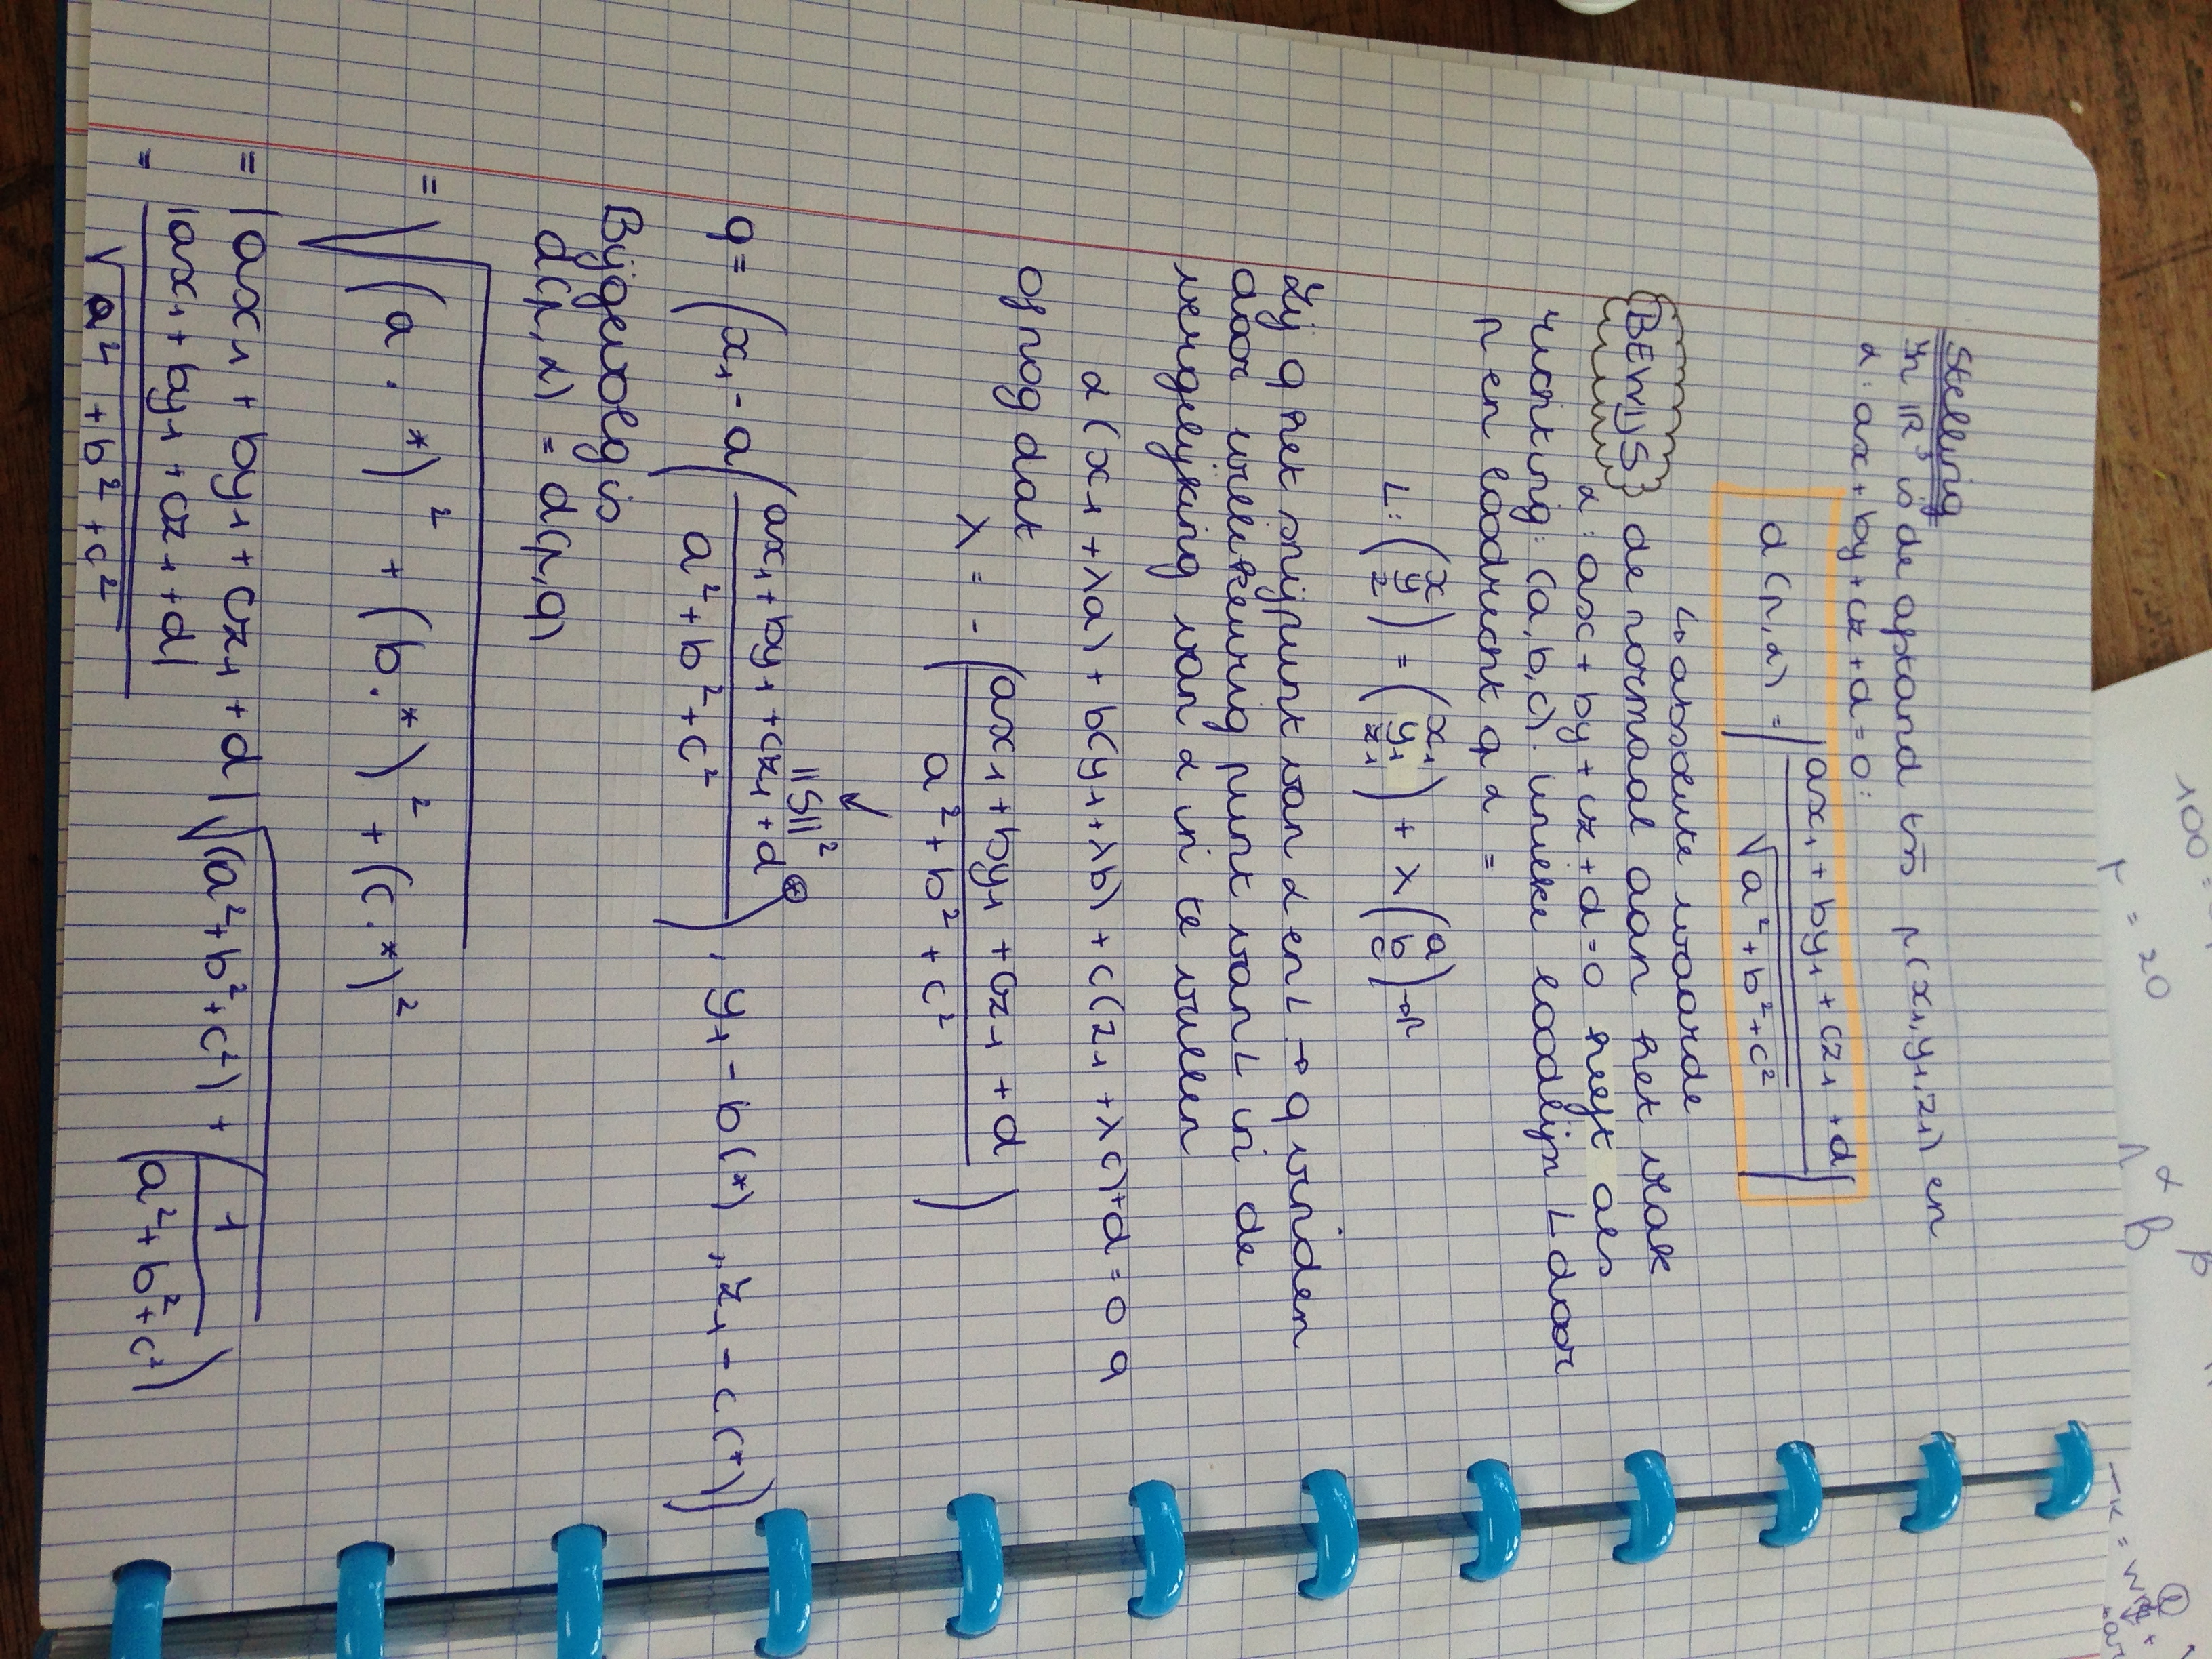 Stelling
In ℝ³ is de afstand tss p(x₁, y₁, z₁) en
α: ax + by + cz + d = 0:
d(p, α) = | |ax₁ + by₁ + cz₁ + d| / √a² + b² + c² |
↳ absolute waarde
BEWIJS de normaal aan het vlak
α: ax + by + cz + d = 0 heeft als
richting: (a, b, c). unieke loodlijn L door
p en loodrecht op α =
L: (x y z) = (x₁ y₁ z₁) + λ (a b c) → p
Zij q het snijpunt van α en L → q vinden
door willekeurig punt van L in de
vergelijking van α in te vullen
α(x₁ + λa) + b(y₁ + λb) + c(z₁ + λc) + d = 0 q
of nog dat
λ = - (ax₁ + by₁ + cz₁ + d / a² + b² + c²)
||S||²
q = (x₁ - a (ax₁ + by₁ + cz₁ + d / a² + b² + c²) ⊛, y₁ - b(*), z₁ - c(*))
Bijgevolg is
d(p, α) = d(p, q)
= √(a · *)² + (b · *)² + (c · *)²
= |ax₁ + by₁ + cz₁ + d| √(a² + b² + c²) + (1 / a² + b² + c²)
= |ax₁ + by₁ + cz₁ + d| / √a² + b² + c²
100 =
r = 20